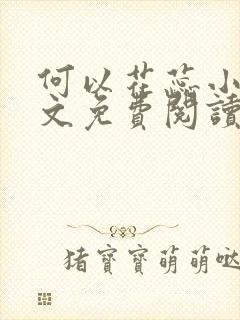 何以花蕊小
文免费閱讀
猪寶寶萌萌哒